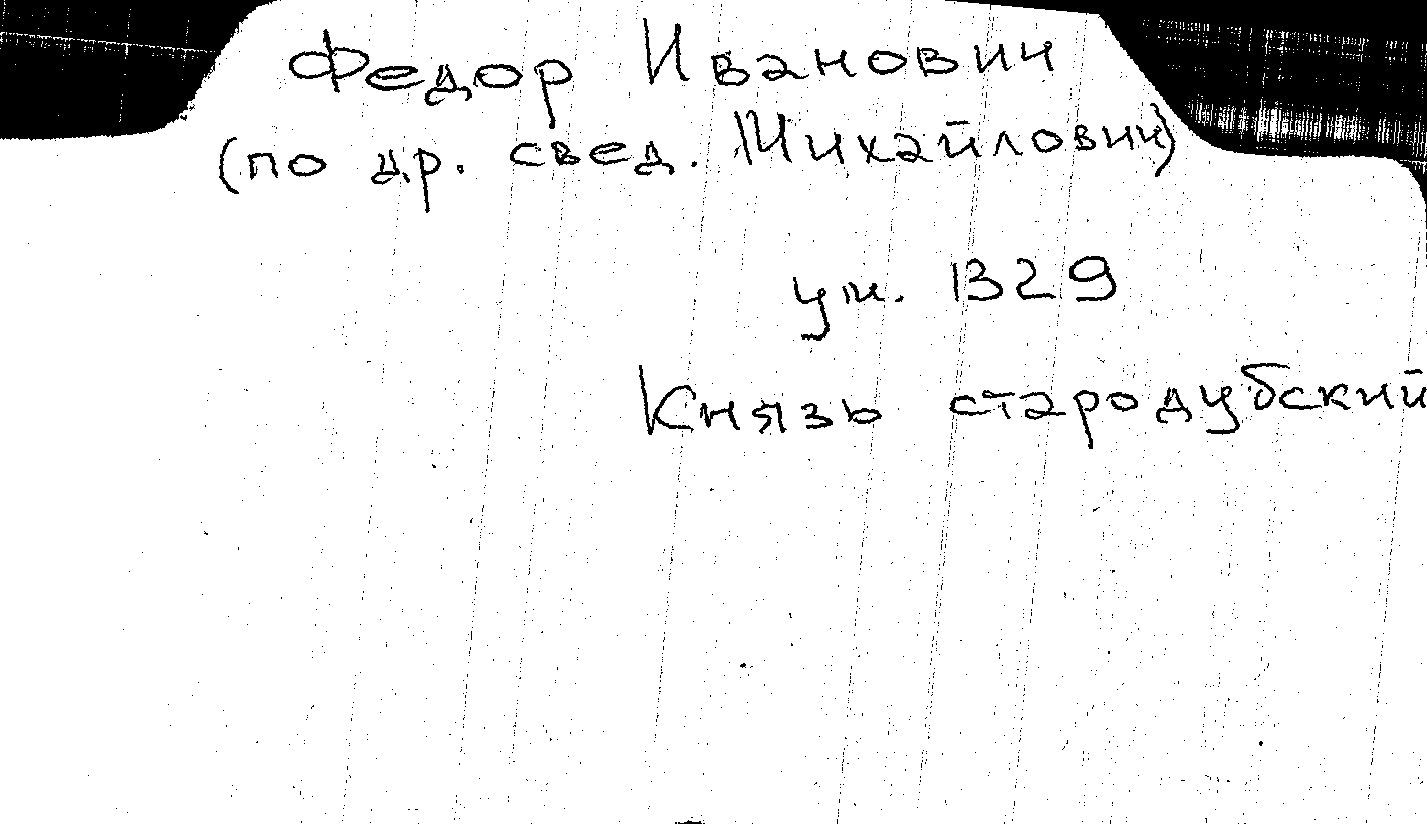 Федор Иванович
(по др. свед. Михайлович)
ум. 1329
Князь стародубский